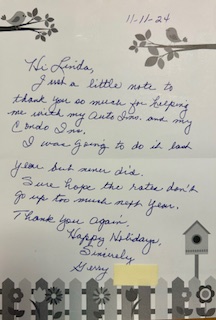 11-11-24
Hi Linda,
Just a little note to
thank you so much for helping
me with my Auto Ins. and my
Condo Ins.
I was going to do it last
year but never did.
Sure hope the rates don't
go up too much next year.
Thank you again.
Happy Holidays,
Sincerely
Gerry